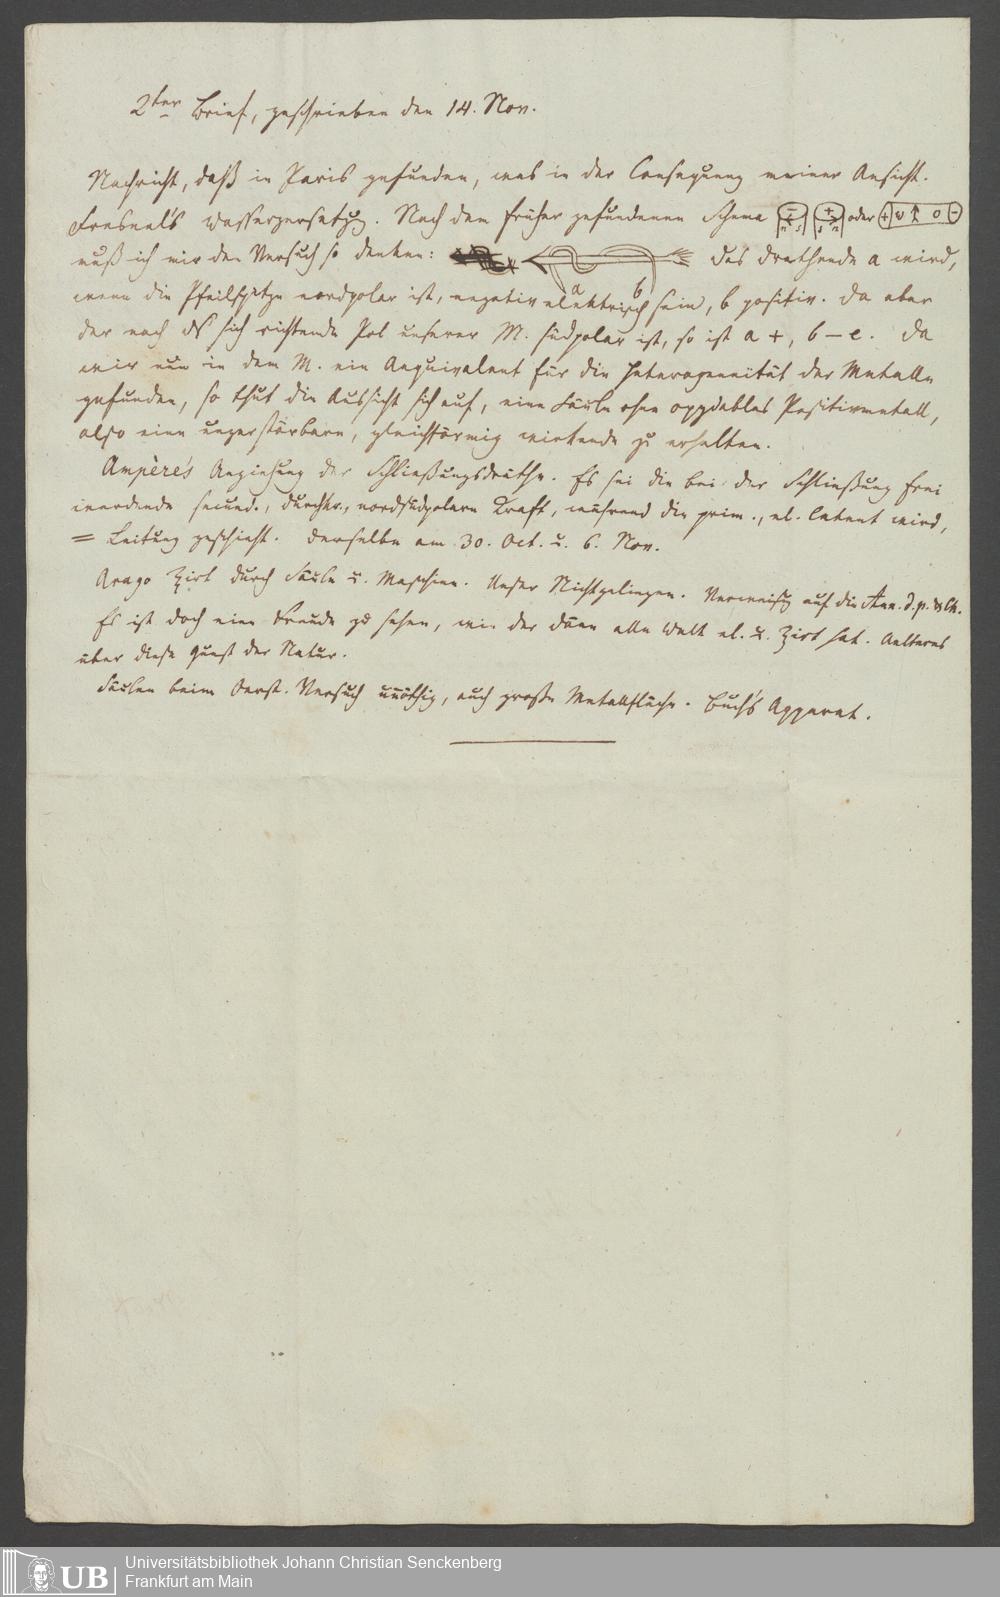 2ter Brief, geschrieben den 14. Nov.
Nachricht, daß in Paris gefunden, was in der Consequenz meiner Ansicht.
Fresnel's Wasserzersetzg. Nach dem früher gefundenen Schema − n s + s n oder + w o −
muß ich mir den Versuch so denken: das Drathende a wird,
a b
wenn die Pfeilspitze nordpolar ist, negativ elektrisch sein, b positiv. Da aber
der nach sich richtende Pol unserer M. südpolar ist, so ist a +, b − e. Da
wir nun in dem M. ein Aequivalent für die Heterogeneität der Metalle
gefunden, so thut die Aussicht sich auf, eine Säule ohne oxydables Positivmetall,
also eine unzerstörbare, gleichförmig wirkende zu erhalten.
Ampère's Anziehung der Schließungsdräthe. Es sei die bei der Schließung frei
werdende secund., durchkr., nordsüdpolare Kraft, während die prim., el. latent wird,
= Leitung geschieht. Derselbe am 30. Oct. u. 6. Nov.
Arago durch Säule u. Maschine. Unser Nichtgelingen. Verweisg auf die Ann. d. p. & Ch.
Es ist doch eine Freude zu sehen, wie der dann alle Welt el. u. hat. Aelteres
über diese Gunst der Natur.
Säulen beim Oerst. Versuch unnöthig, auch große Metallfläche. Buch's Apparat.
UB Universitätsbibliothek Johann Christian Senckenberg
Frankfurt am Main